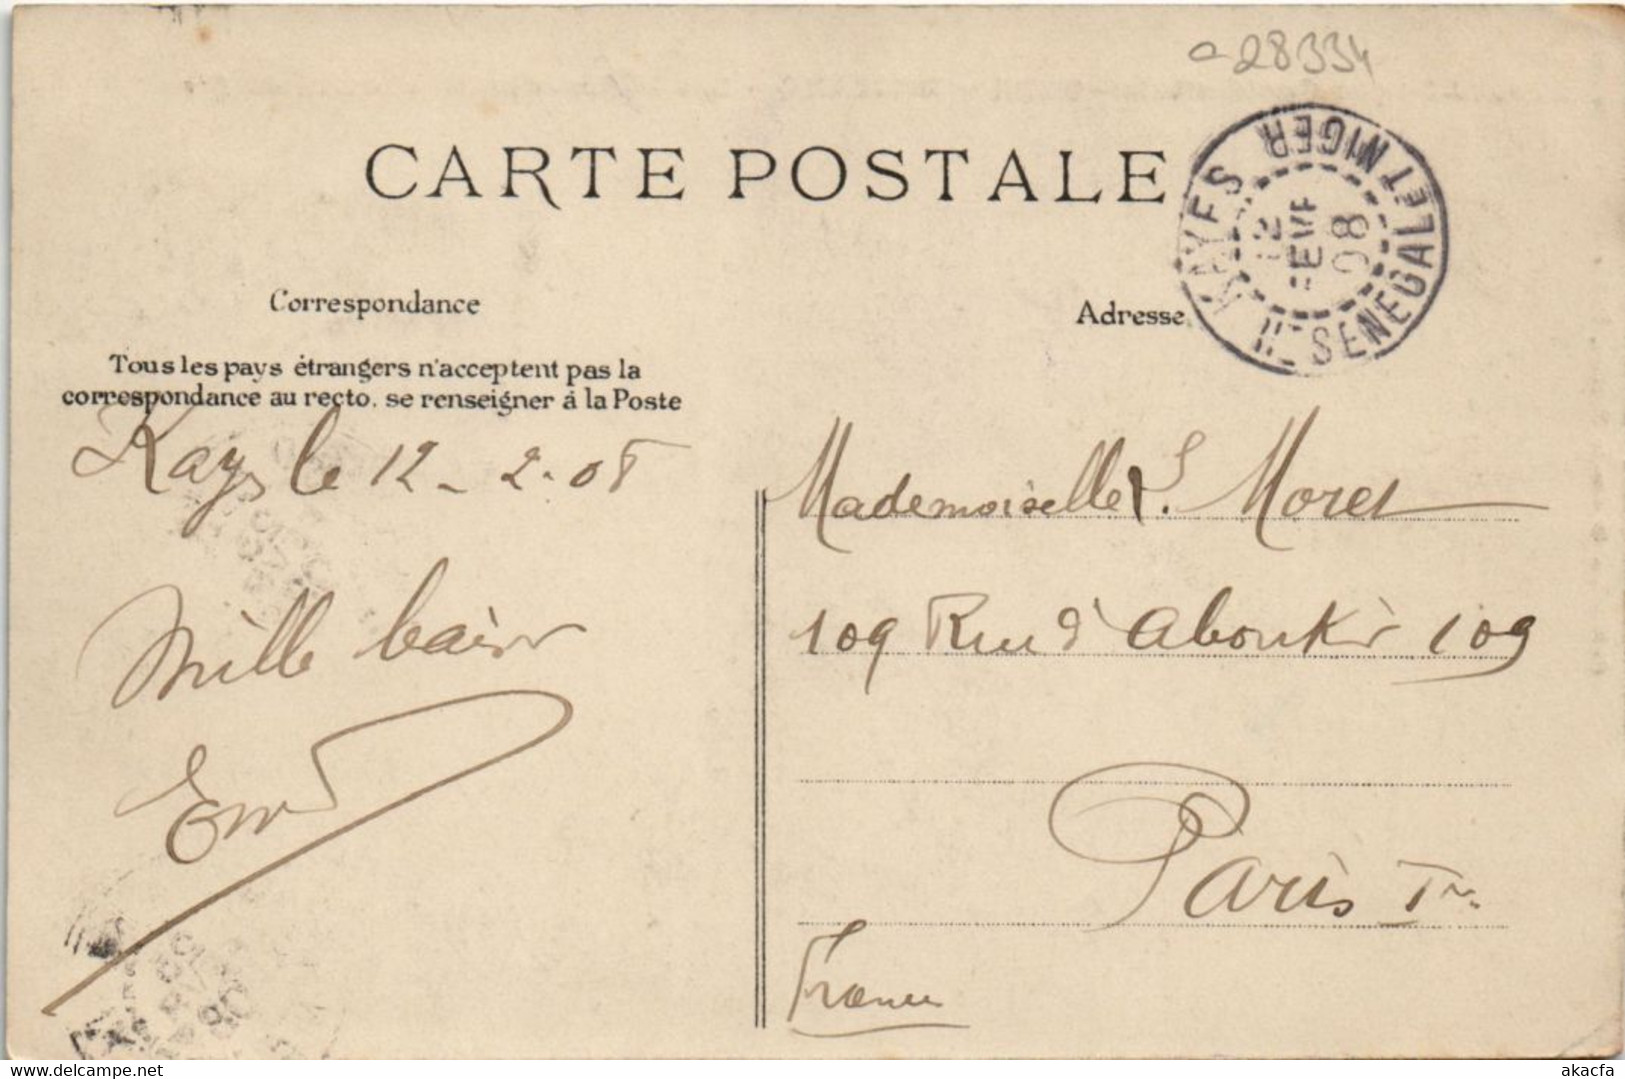 a28334
CARTE POSTALE
KAYES Ht SENEGAL ET NIGER
12
FEVR
08
Correspondance
Adresse
Tous les pays étrangers n'acceptent pas la
correspondance au recto, se renseigner à la Poste
Kayes le 12 - 2 - 08
Mademoiselle S. Moret
109 Rue d'Aboukir 109
Mille baisers
Paris
France
akacfa